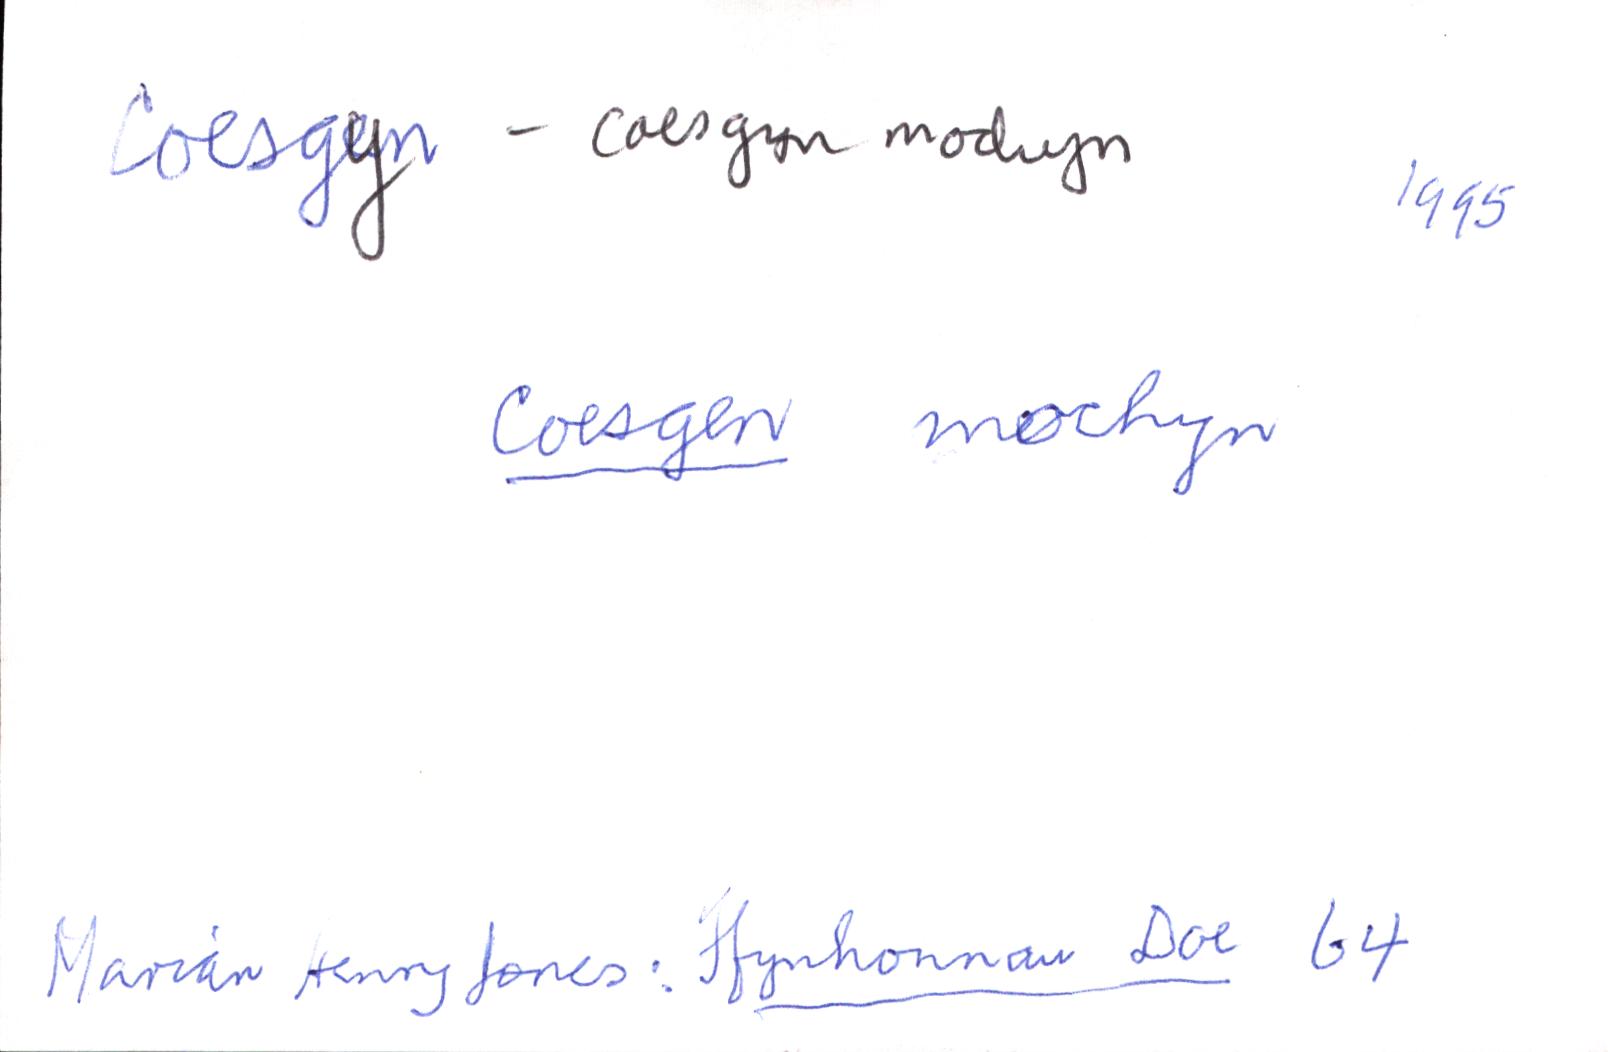 Coesgyn – coesgyn mochyn
1995
Coesgen mochyn
Marian Henry Jones: Ffynhonnau Doe 64